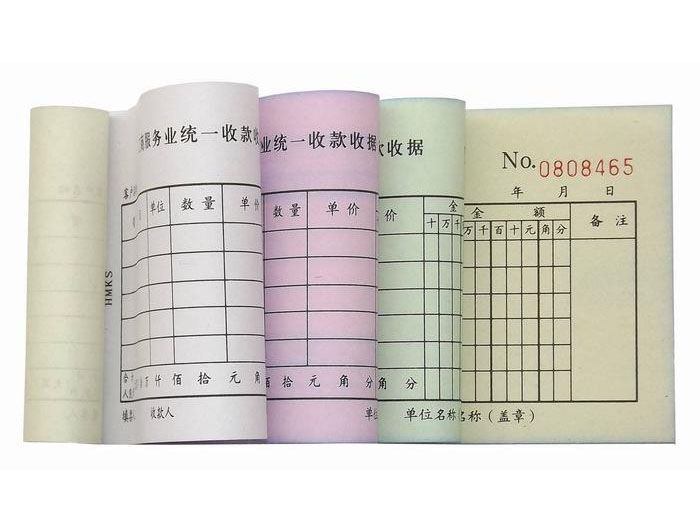 服务业统一收款收
业统一收款收据
收据
No. 0808465
年 月 日
客户
单位 数量 单价
数量 单价
价 金
十万千
金 额 备注
万千百十元角分
HMKS
合
万仟佰拾元角
佰拾元角分
角分
收款人
单位
单位名称
名称（盖章）